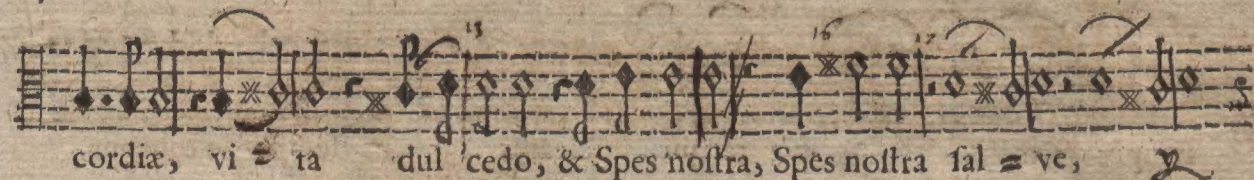 13 16 17
cordiæ, vi = ta dul cedo, & Spes noſtra, Spes noſtra ſal = ve,